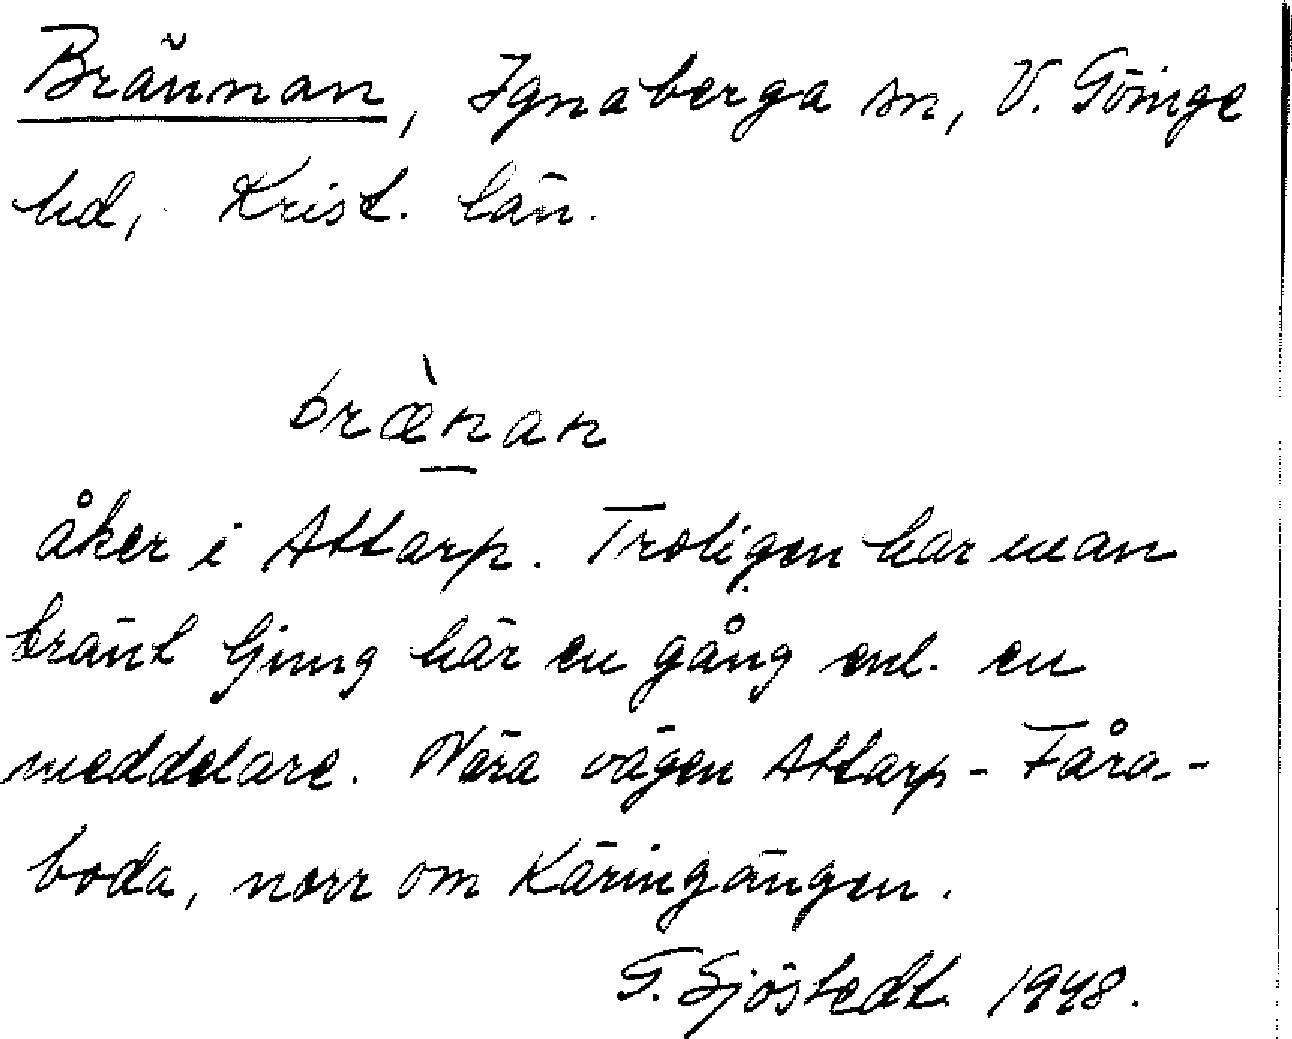 Brännan, Ignaberga sn, V. Göinge
hd, Krist. län.
bræ̀nan
åker i Attarp. Troligen har man
bränt ljung här en gång enl. en
meddelare. Nära vägen Attarp - Fåra-
boda, norr om Käringängen.
G. Sjöstedt 1948.